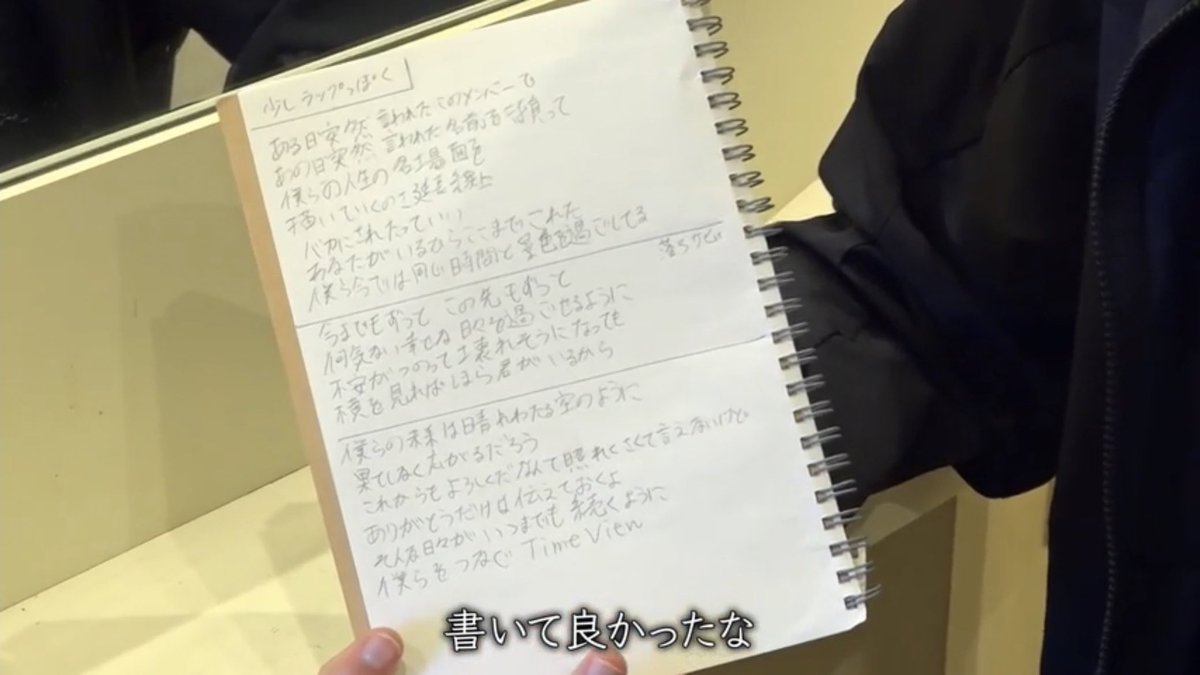 少しラップっぽく
ある日突然 言われた このメンバーで
あの日突然 言われた名前背負って
僕らの人生の名場面を
描いていくのさ延長線上
バカにされたっていい
あなたがいるからここまでこれた
僕ら今では同じ時間と景色を過ごしてる
落ちサビ
今までもずっと この先もずっと
何気ない幸せな日々を過ごせるように
不安がつのって壊れそうになっても
横を見ればほら君がいるから
僕らの未来は晴れわたる空のように
果てしなく広がるだろう
これからもよろしくだなんて照れくさくて言えないけど
ありがとうだけは伝えておくよ
そんな日々がいつまでも続くように
僕らをつなぐ Time View
書いて良かったな